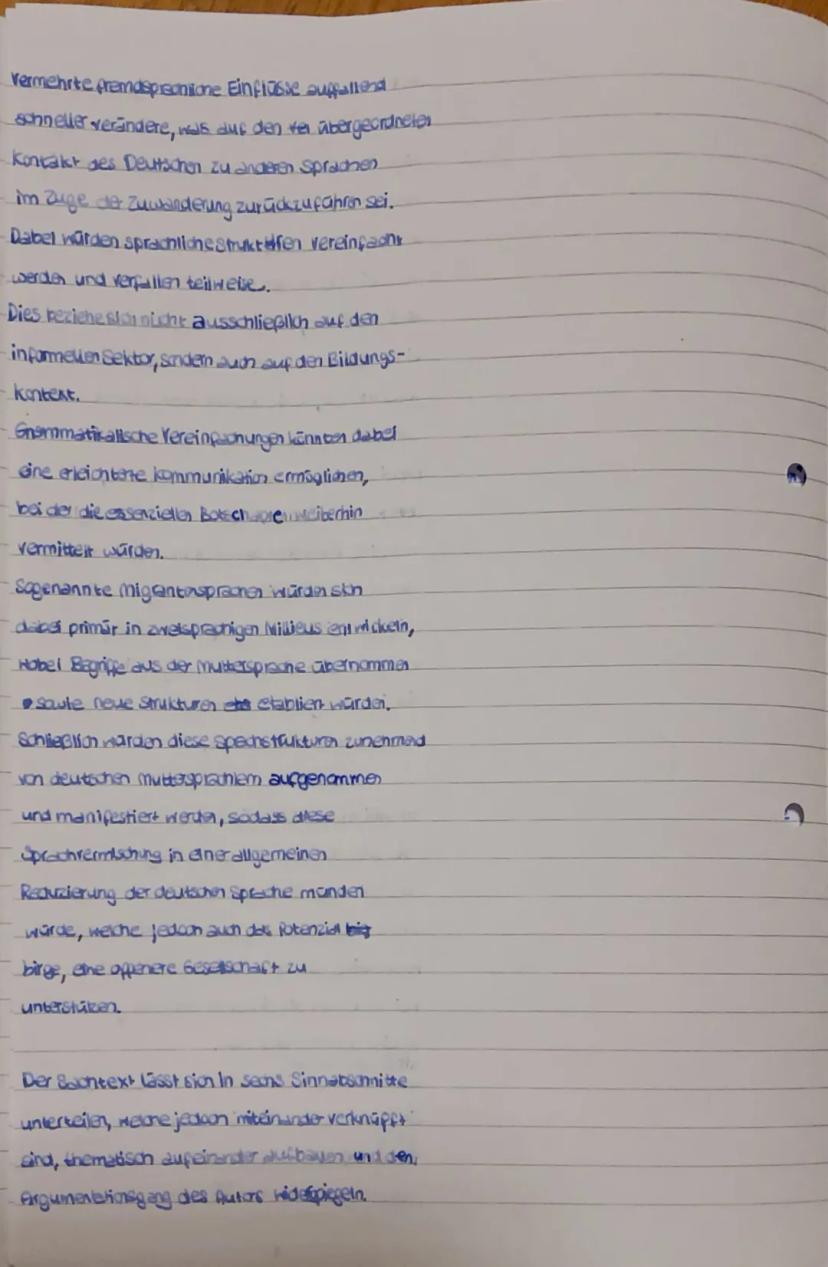 Vermehrte fremdsprachliche Einflüsse auffallend
schneller verändere, was auf den übergeordneten
Kontakt des Deutschen zu anderen Sprachen
im Zuge der Zuwanderung zurückzuführen sei.
Dabei würden sprachliche Strukturen vereinfacht
werden und verfallen teilweise.
Dies beziehe sich nicht ausschließlich auf den
informellen Sektor, sondern auch auf den Bildungs-
kontext.
Grammatikalische Vereinfachungen könnten dabei
eine erleichterte Kommunikation ermöglichen,
bei der die essenziellen Botschaften weiterhin
vermittelt würden.
Sogenannte Migrantensprachen würden sich
dabei primär in zweisprachigen Milieus entwickeln,
wobei Begriffe aus der Muttersprache übernommen
sowie neue Strukturen etabliert würden.
Schließlich würden diese Sprechstrukturen zunehmend
von deutschen Muttersprachlern aufgenommen
und manifestiert werden, sodass diese
Sprachvermischung in einer allgemeinen
Reduzierung der deutschen Sprache münden
würde, welche jedoch auch das Potenzial
birge, eine offenere Gesellschaft zu
unterstützen.
Der Sachtext lässt sich in sechs Sinnabschnitte
unterteilen, welche jedoch miteinander verknüpft
sind, thematisch aufeinander aufbauen und den
Argumentationsgang des Autors widerspiegeln.